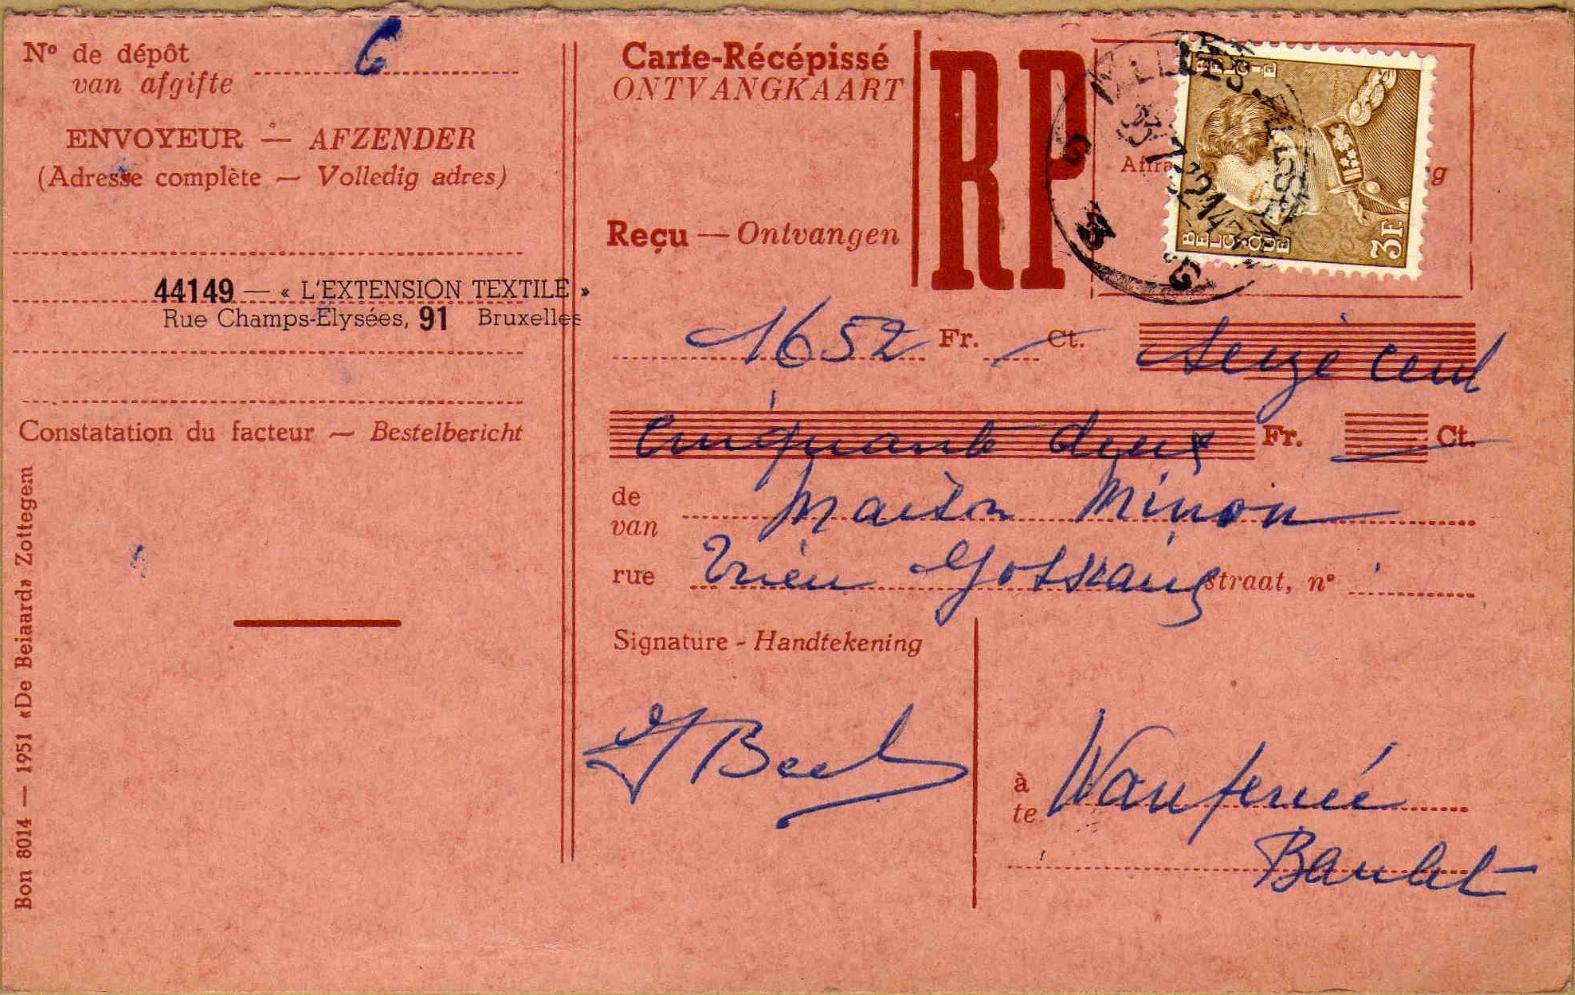 Nº de dépôt
van afgifte
6
ENVOYEUR — AFZENDER
(Adresse complète — Volledig adres)
44149 — « L'EXTENSION TEXTILE »
Rue Champs-Elysées, 91 Bruxelles
Constatation du facteur — Bestelbericht
Bon 8014 — 1951 «De Beiaard» Zottegem
Carte-Récépissé
ONTVANGKAART
RP
Reçu — Ontvangen
BELGIQUE
3F
1652 Fr. — Ct. Seize cent
cinquante deux Fr. — Ct.
de
van
Maison Minon
rue Trieu Gossiaux straat, nº
Signature - Handtekening
à
te
Wanfercée
Baulet